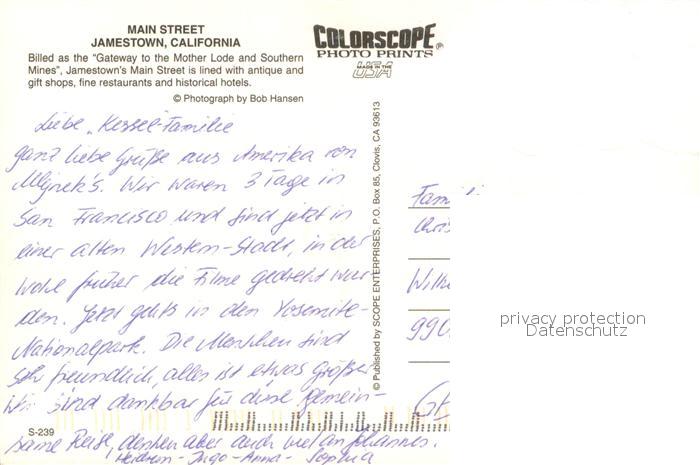 MAIN STREET
JAMESTOWN, CALIFORNIA
Billed as the "Gateway to the Mother Lode and Southern
Mines", Jamestown's Main Street is lined with antique and
gift shops, fine restaurants and historical hotels.
© Photograph by Bob Hansen
COLORSCOPE®
PHOTO PRINTS
MADE IN THE
USA
Liebe „Kessel-Familie
ganz liebe Grüße aus Amerika von
Mlynek's. Wir waren 3 Tage in
San Francisco und sind jetzt in
einer alten Western-Stadt, in der
wohl früher die Filme gedreht wur-
den. Jetzt geht's in den Yosemite-
Nationalpark. Die Menschen sind
sehr freundlich, alles ist etwas größer
Wir sind dankbar für diese gemein-
same Reise, denken aber auch viel an Johannes.
Heidrun - Ingo - Anna - Sophia
S-239
© Published by SCOPE ENTERPRISES, P.O. Box 85, Clovis, CA 93613
Fami
Chris
Wilh
990
privacy protection
Datenschutz